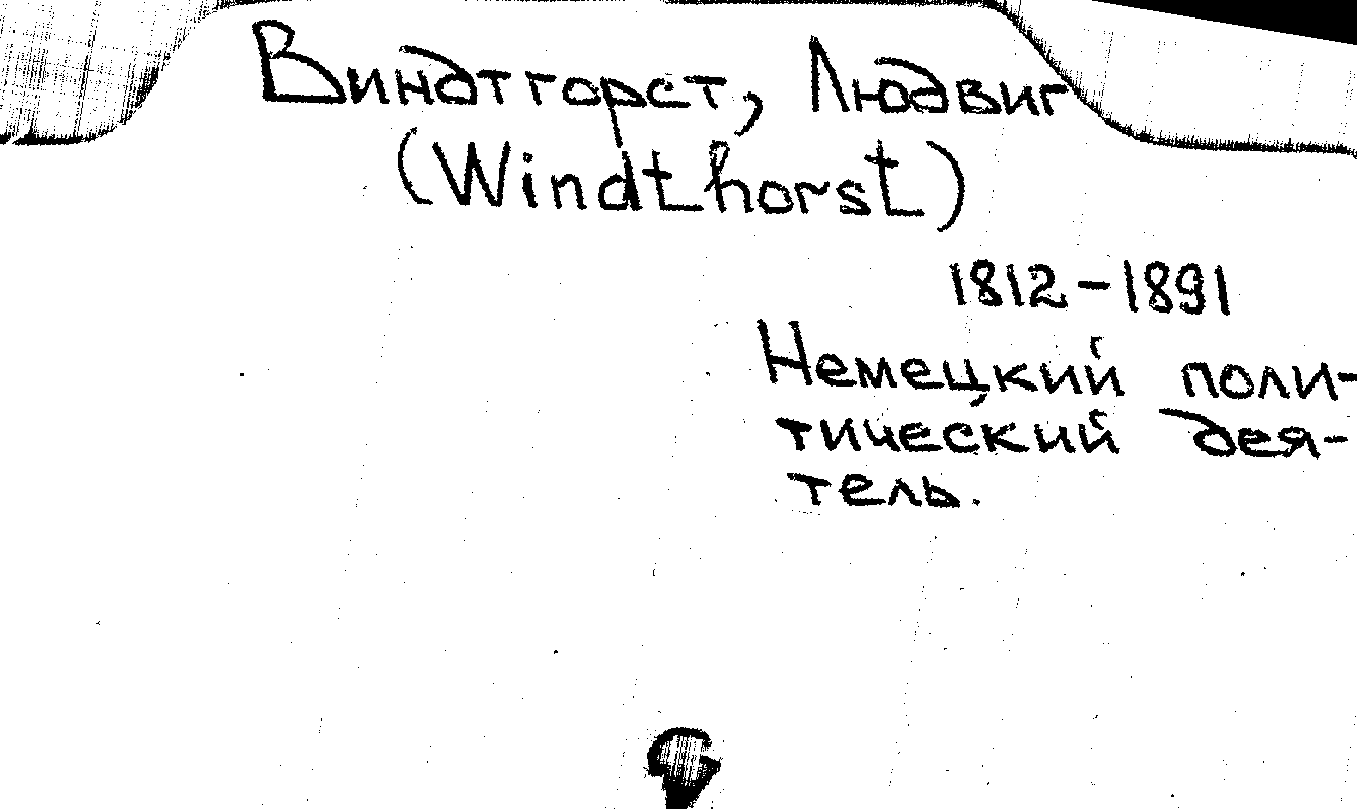 Виндтгорст, Людвиг
(Windthorst)
1812-1891
Немецкий поли-
тический дея-
тель.